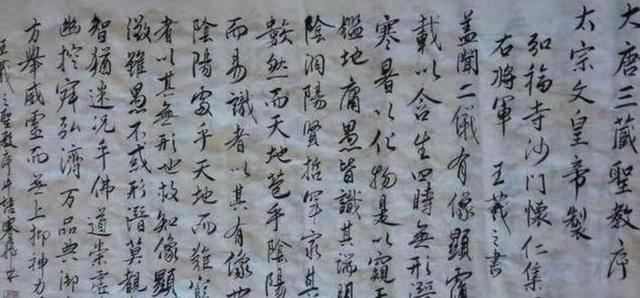 大唐三藏聖教序
太宗文皇帝製
弘福寺沙門懷仁集
右將軍王羲之書
蓋聞二儀有像顯覆
載以含生四時無形潛
寒暑以化物是以窺天
鑑地庸愚皆識其端明
陰洞陽賢哲罕窮其
數然而天地苞乎陰陽
而易識者以其有像也
陰陽處乎天地而難窮
者以其無形也故知像顯
徵雖愚不惑形潛莫覩
智猶迷況乎佛道崇虛
幽控寂弘濟万品典御
方舉威靈而無上抑神力
王羲之聖教序